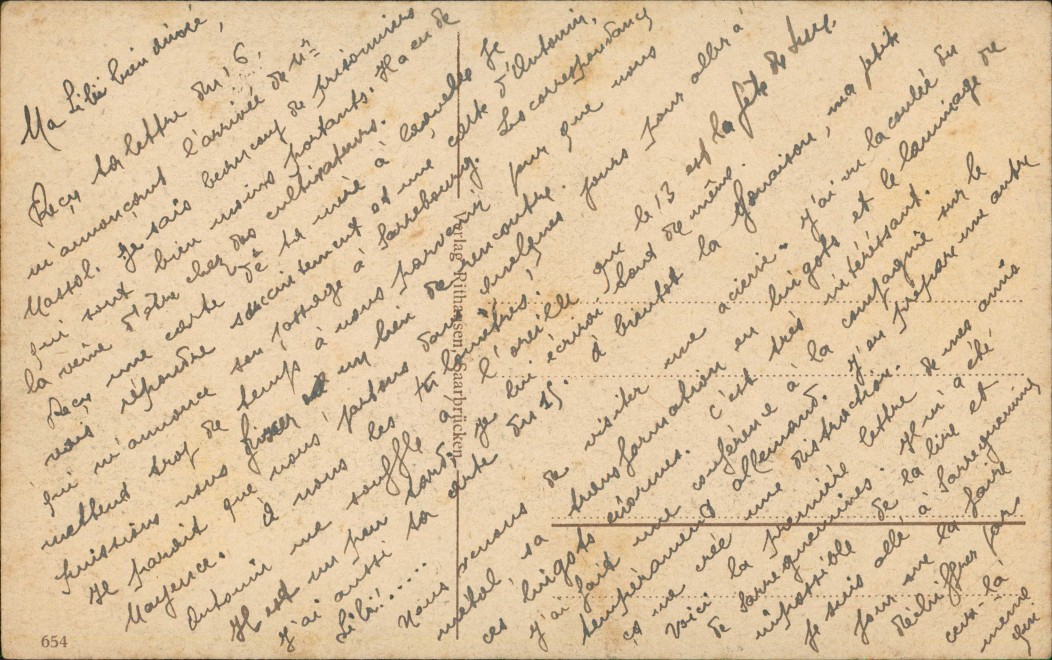 Ma Libi bien aimée,
Reçu ta lettre du 6,
m'annonçant l'arrivée de Mr
Massol. Je sais beaucoup de prisonniers
qui sont bien moins portants. Il a eu de
la veine d'être chez des cultivateurs.
Reçu une carte de ta mère à laquelle je
vais répondre succintement et une carte d'Antonin,
qui m'annonce son passage à Sarrebourg. Les correspondances
mettent trop de temps à nous parvenir pour que nous
puissions nous fixer un lieu de rencontre.
Il paraît que nous partons dans quelques jours pour aller à
Mayence. à nous les
Antonin me souffle à l'oreille que le 13 est la fête de
Il est un peu tard. Je lui écrirai tout de même.
J'ai aussi ta carte du 15. à bientôt la ma petite
Libi!.....
Nous venons de visiter une aciérie. J'ai vu la coulée du
métal sa transformation en lingots et le laminage de
ces lingots énormes. C'est très intéressant.
J'ai fait une conférence à la compagnie sur le
tempérament allemand. J'en prépare une autre
ça me crée une distraction.
Voici la première lettre de mes amis
de Sarreguemines. Il m'a été
impossible de la lire et
je suis allé à Sarreguemines
pour me la faire
déchiffrer par
ceux-là
même
qui
Verlag Rithausen, Saarbrücken
654